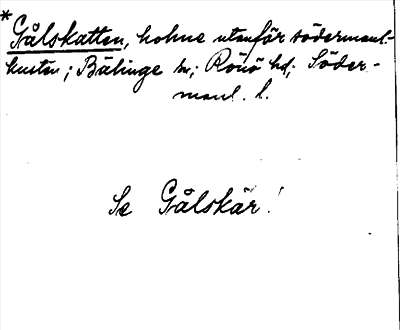 *Gålskatten, holme utanför södermanl.-
kusten; Bälinge sn; Rönö hd; Söder-
manl. l.
Se Gålskär!